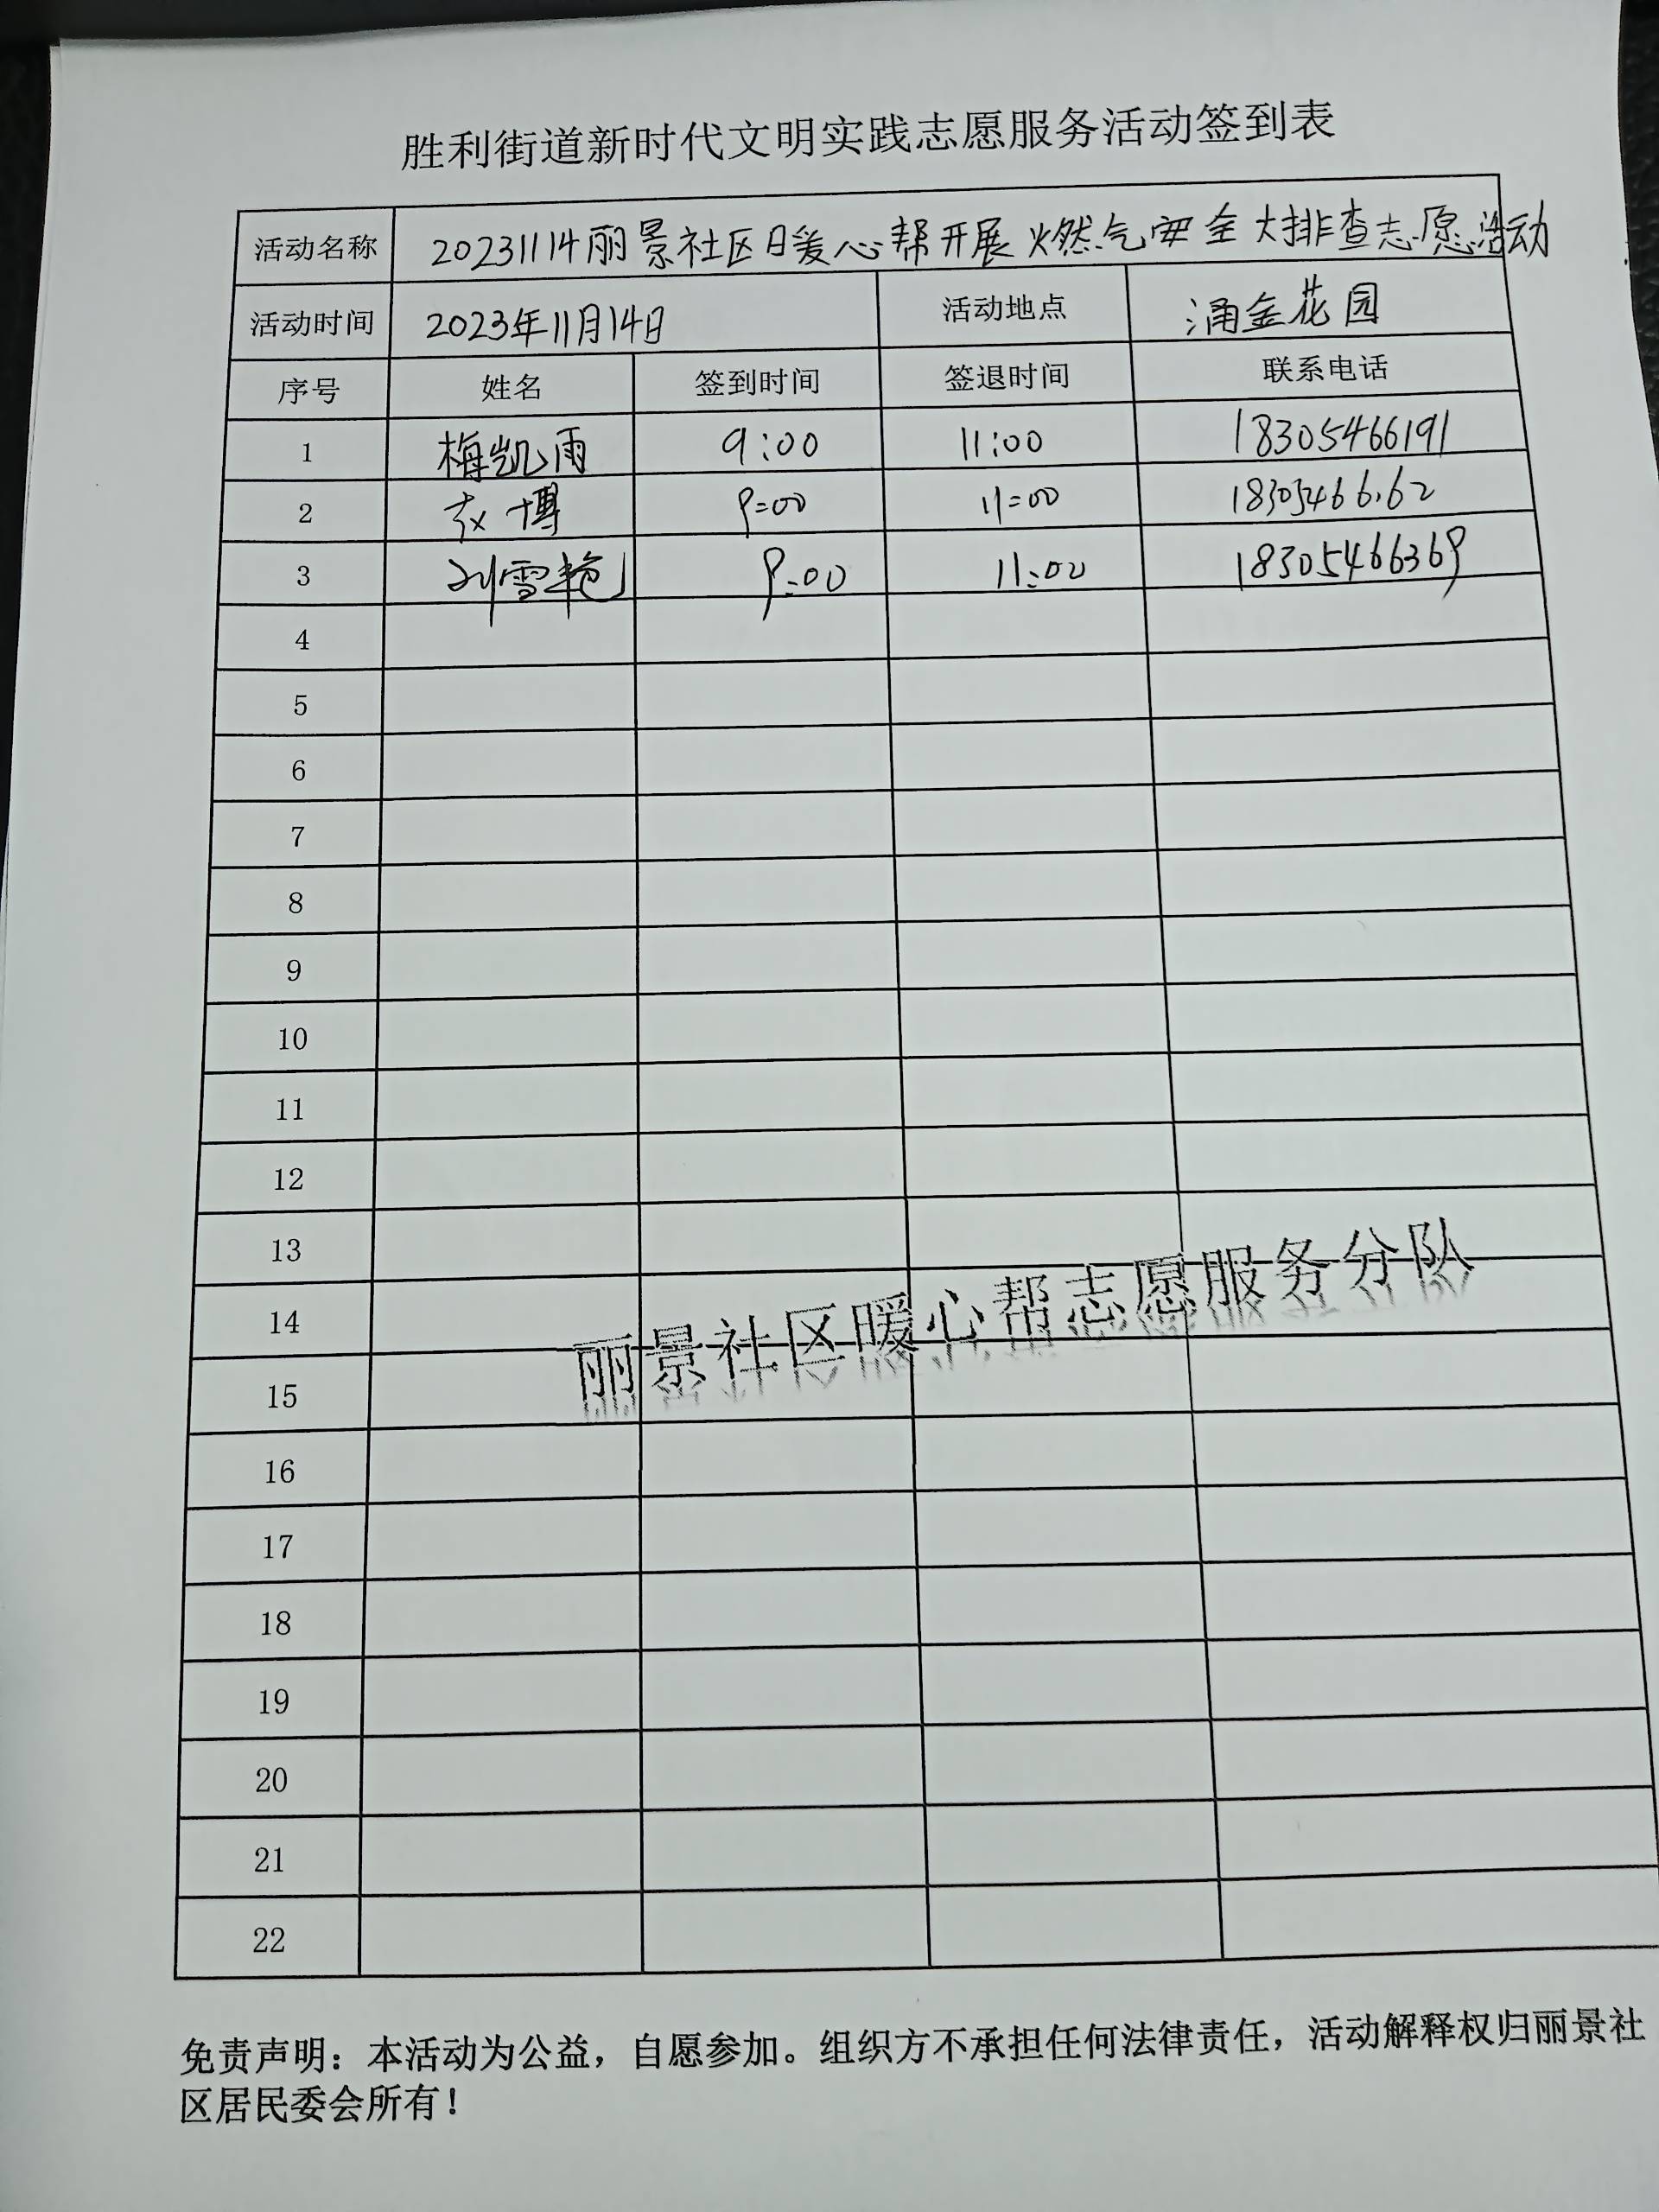 胜利街道新时代文明实践志愿服务活动签到表
活动名称 20231114丽景社区暖心帮开展燃气安全大排查志愿活动
活动时间 2023年11月14日 活动地点 涌金花园
序号 姓名 签到时间 签退时间 联系电话
1 梅凯雨 9:00 11:00 18305466191
2 赵博 9:00 11:00 18305466162
3 刘雪艳 9:00 11:00 18305466369
4
5
6
7
8
9
10
11
12
13
14
15
16
17
18
19
20
21
22
丽景社区暖心帮志愿服务分队
免责声明：本活动为公益，自愿参加。组织方不承担任何法律责任，活动解释权归丽景社
区居民委会所有！